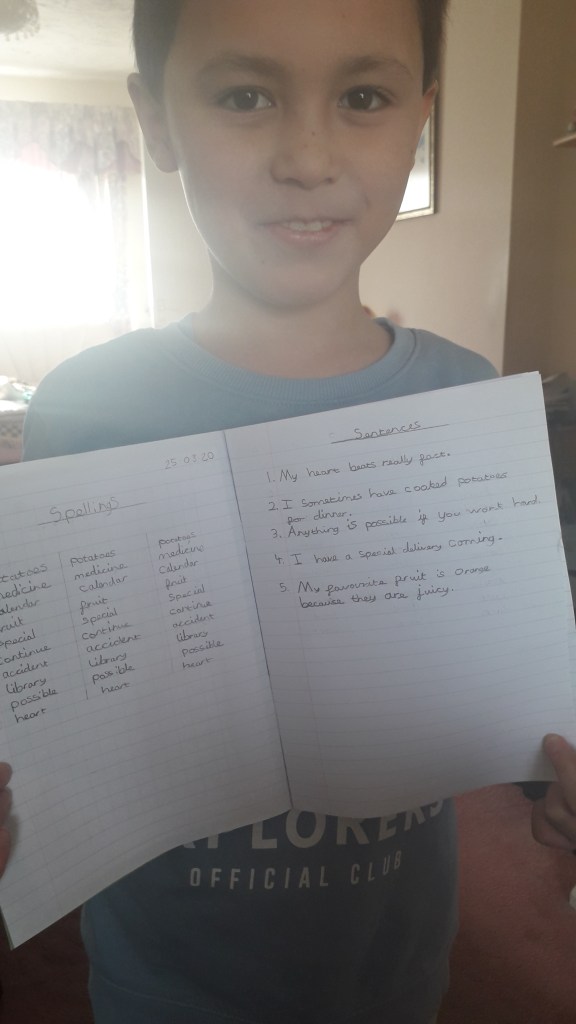 25.07.20
Spellings
potatoes potatoes
medicine medicine
calendar calendar
fruit fruit
special special special
continue continue continue
accident accident accident
library library library
possible possible possible
heart heart heart
Sentences
1. My heart beats really fast.
2. I sometimes have cooked potatoes
for dinner.
3. Anything is possible if you work hard.
4. I have a special delivery coming.
5. My favourite fruit is orange
because they are juicy.
OFFICIAL CLUB